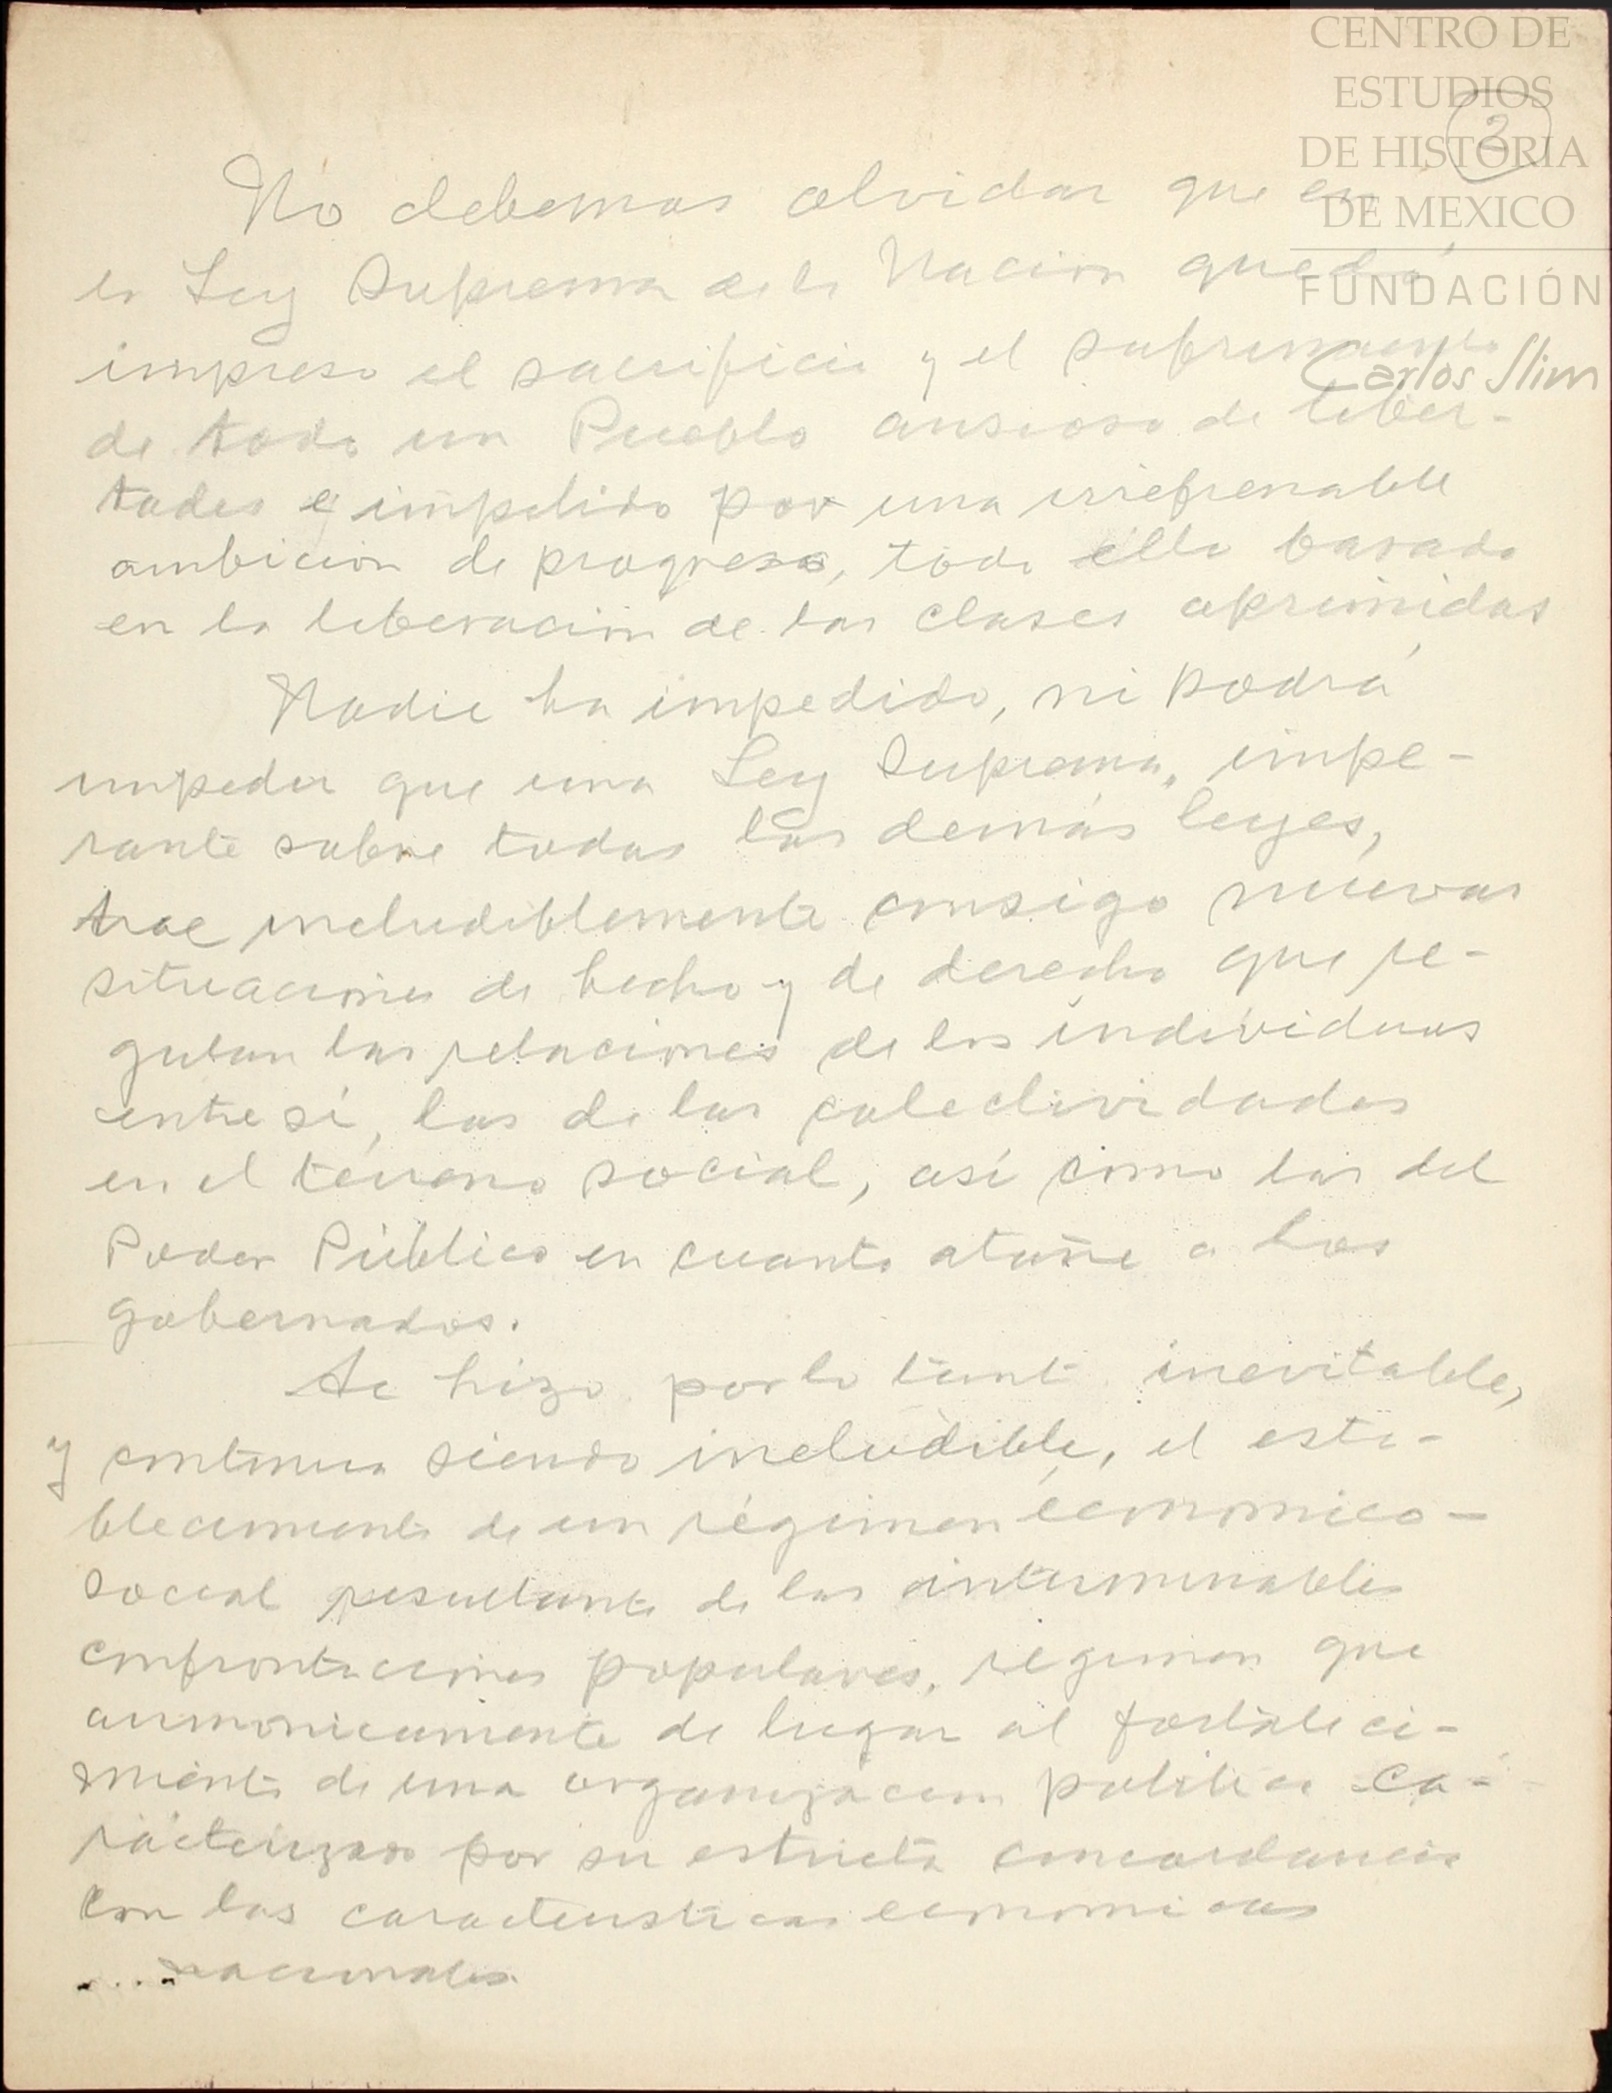 CENTRO DE
ESTUDIOS
DE HISTORIA
DE MEXICO
FUNDACIÓN
Carlos Slim
2
No debemos olvidar que en
la Ley Suprema de la Nacion quedó
impreso el sacrificio y el sufrimiento
de todo un Pueblo ansioso de liber-
tades e impelido por una irrefrenable
ambición de progreso, todo ello basado
en la liberación de las clases oprimidas
Nadie ha impedido, ni podrá
impedir que una Ley Suprema, impe-
rante sobre todas las demás leyes,
trae ineludiblemente consigo nuevas
situaciones de hecho y de derecho que re-
gulan las relaciones de los individuos
entre sí, las de las colectividades
en el terreno social, así como las del
Poder Público en cuanto atañe a los
gobernados.
Se hizo por lo tanto inevitable,
y continua siendo ineludible, el esta-
blecimiento de un régimen económico-
social resultante de las interminables
confrontaciones populares, régimen que
armonicamente de lugar al fortaleci-
miento de una organizacion politica ca-
racterizada por su estricta concordancia
con las caracteristicas economicas
....nacionales.